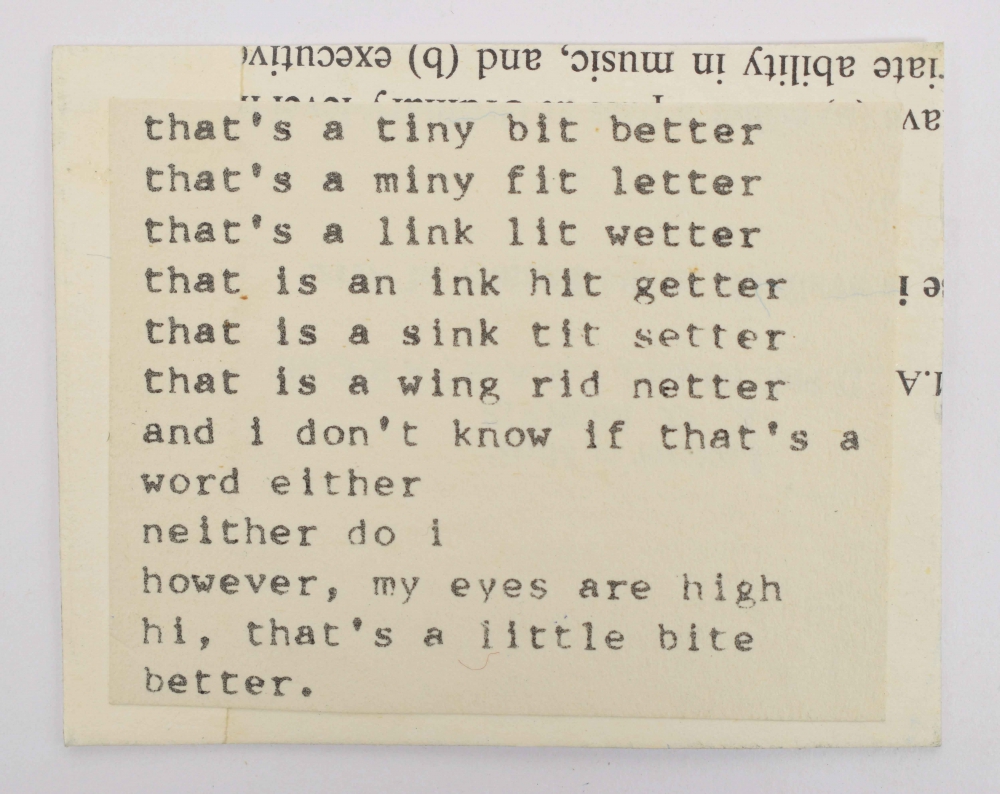 iate ability in music, and (b) executiv
av
that's a tiny bit better
that's a miny fit letter
that's a link lit wetter
that is an ink hit getter
that is a sink tit setter
that is a wing rid netter
and i don't know if that's a
word either
neither do i
however, my eyes are high
hi, that's a little bite
better.